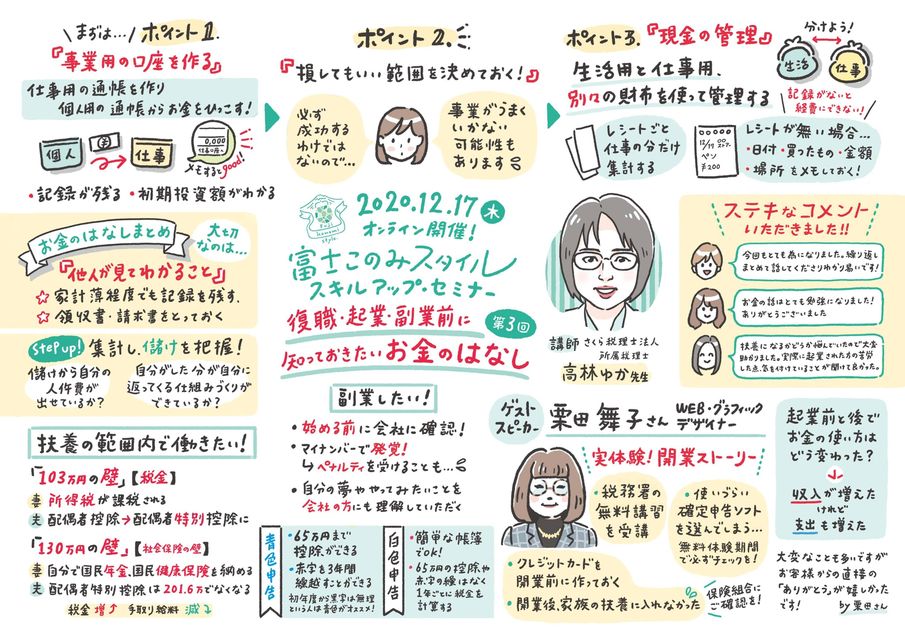 まずは…
ポイント1.
『事業用の口座を作る』
仕事用の通帳を作り
個人用の通帳からお金をひっこす！
個人
仕事
0,000
メモするとgood!
・記録が残る・初期投資額がわかる
お金のはなしまとめ
大切なのは…
『他人が見てわかること』
☆家計簿程度でも記録を残す.
☆領収書・請求書をとっておく
Step up!
集計し、儲けを把握！
儲けから自分の
人件費が
出せているか？
自分がした分が自分に
返ってくる仕組みづくりが
できているか？
扶養の範囲内で働きたい！
「103万円の壁」【税金】
妻 所得税が課税される
夫 配偶者控除→配偶者特別控除に
「130万円の壁」【社会保険の壁】
妻 自分で国民年金、国民健康保険を納める
夫 配偶者特別控除は201.6万でなくなる
税金増↑ 手取り給料 減↓
ポイント2.
『損してもいい範囲を決めておく！』
必ず
成功する
わけでは
ないので…
事業がうまく
いかない
可能性も
あります
Fuji
konomi
style
2020.12.17 木
オンライン開催！
富士このみスタイル
スキルアップ・セミナー
第3回
復職・起業・副業前に
知っておきたいお金のはなし
副業したい！
・始める前に会社に確認！
・マイナンバーで発覚！
↳ペナルティを受けることも…
・自分の夢ややってみたいことを
会社の方にも理解していただく
青色申告
・65万円まで
控除ができる
・赤字を3年間
繰越すことができる
初年度から黒字は無理
という人は青色がオススメ！
白色申告
・簡単な帳簿
でOK！
・65万円の控除や
赤字の繰越はなく
1年ごとに税金を
計算する
ポイント3.『現金の管理』
分けよう！
生活
仕事
生活用と仕事用、
別々の財布を使って管理する
記録がないと
経費にできない！
レシートごと
仕事の分だけ
集計する
12/17
ペン
¥200
レシートが無い場合…
・日付・買ったもの・金額
・場所 をメモしておく！
講師 さくら税理士法人
所属税理士
高林ゆか先生
ステキなコメント
いただきました!!
今回もとても為になりました。繰り返し
まとめて話してくださりわかり易いです！
お金の話はとても勉強になりました！
ありがとうございました
扶養になるかどうか悩んでいたので大変
助かりました。実際に起業された方の苦労
した点、気を付けていることが聞けて良かった。
ゲスト
スピーカー
栗田 舞子さん
WEB・グラフィック
デザイナー
実体験！開業ストーリー
・税務署の
無料講習
を受講
・使いづらい
確定申告ソフト
を選んでしまう…
無料体験期間
で必ずチェックを！
・クレジットカードを
開業前に作っておく
・開業後、家族の扶養に入れなかった
保険組合に
ご確認を！
起業前と後で
お金の使い方は
どう変わった？
↓
収入が増えた
けれど
支出も増えた
大変なことも多いですが
お客様からの直接の
「ありがとう」が嬉しかった
です！
by栗田さん